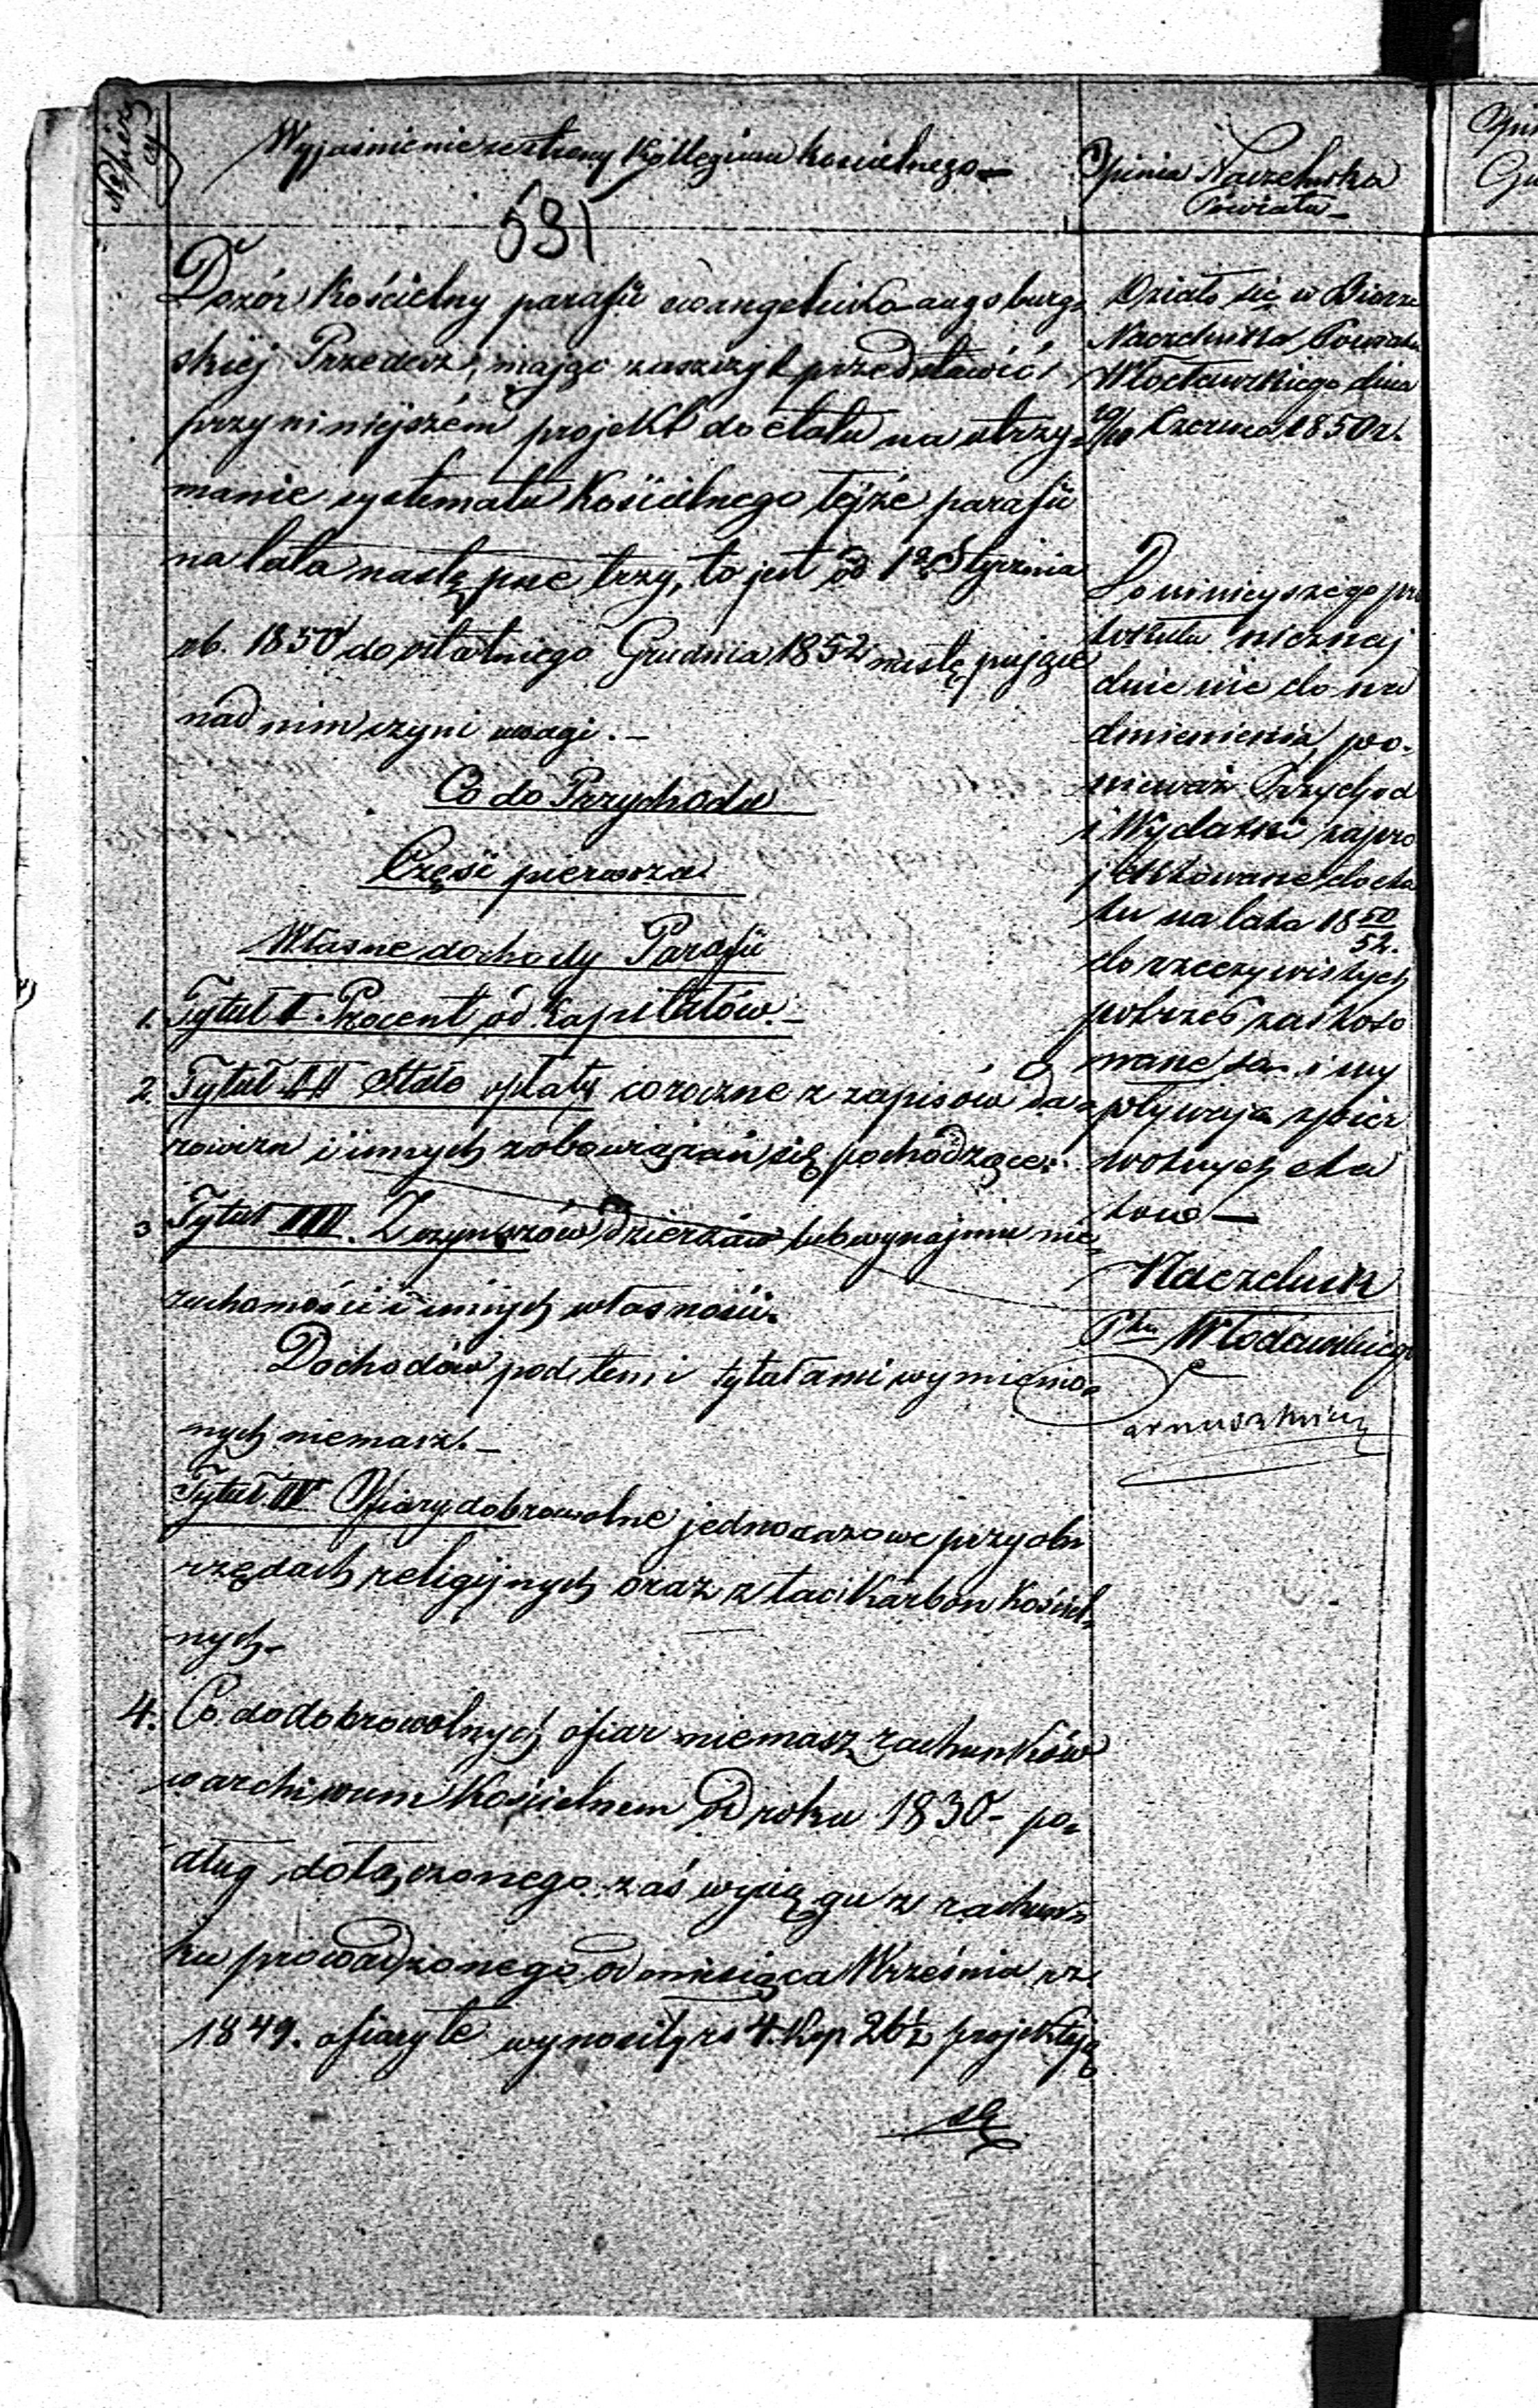 Wyjaśnienie ze strony Kollegium Kościelnego
531
Dozór Kościelny parafii ewangelicko-augsburg=
skiej Przedecz, mając zaszczyt przedstawić
przy niniejszém projekt do etatu na utrzy=
manie systematu Kościelnego tejże parafii
na lata następne trzy, to jest od 1go Stycznia
rb. 1850 do ostatniego Grudnia 1852 następujące
nad nim czyni uwagi. –
Co do Przychodu
Część pierwsza
Własne dochody Parafii
1. Tytuł I. Procent od Kapitałów. –
2. Tytuł II Stałe opłaty coroczne z zapisów da=
rowizn i innych zobowiązań się pochodzące.
3 Tytuł III. Z czynszów dzierżaw lub wynajmu nie
ruchomości i innych własności.
Dochodów pod temi tytułami wymienio=
nych niemasz. –
Tytuł IV Ofiary dobrowolne jednorazowe przy ob
rzędach religijnych oraz z tac i Karbon Kościel=
nych
4. Co do dobrowolnych ofiar niemasz rachunków
w archiwum Kościelnem od roku 1830 – po=
dług dołączonego zaś wyciągu z rachun=
ku prowadzonego od miesiąca Września rz.
1849. ofiary te wynosiły rs 4. Kop 26½ projektują
się
Opinia Naczelnika
Powiatu –
Działo się w Biorze
Naczelnika Powiatu
Włocławskiego dnia
Czerwca 1850 r.
Do niniejszego pro
tokułu nicznaj
duie nic do nad
dmienienia, po=
nieważ Przychod
i Wydatki zapro
jektowane do eta
tu na lata 18 50/52.
do rzeczywistych
potrzeb zastoso
wane są i wy
pływają z pier
wotnych eta
tow –
Naczelnik
Ptu Włocławskiego
Opin
Gu